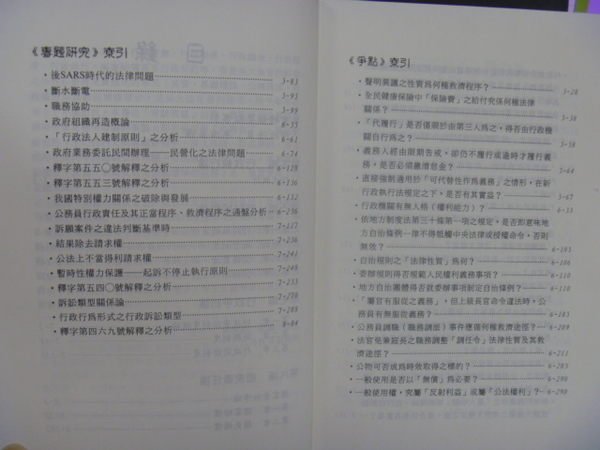 《專題研究》索引
・後SARS時代的法律問題 3-83
・斷水斷電 3-93
・職務協助 3-99
・政府組織再造概論 6-35
・「行政法人建制原則」之分析 6-61
・政府業務委託民間辦理——民營化之法律問題 6-74
・釋字第五五〇號解釋之分析 6-128
・釋字第五五三號解釋之分析 6-136
・我國特別權力關係之破除與發展 6-132
・公務員行政責任及其正當程序、救濟程序之通盤分析
・訴願案件之違法判斷基準時
・結果除去請求權 7-236
・公法上不當得利請求權 7-241
・暫時性權力保護——起訴不停止執行原則 7-249
・釋字第五四〇號解釋之分析 7-233
・訴訟類型關係論 7-253
・行政行為形式之行政訴訟類型 7-288
・釋字第四六九號解釋之分析 8-84
《爭點》索引
・聲明異議之性質為何種救濟程序？ 3-28
・全民健康保險中「保險費」之給付究係何種法律
關係？ 3-38
・「代履行」是否僅限於由第三人為之，得否由行政機
關自行為之？
・義務人經由限期告戒，卻仍不履行或逾時才履行義
務，是否必須繳清怠金？ 3-64
・直接強制適用於「可代替性作為義務」之情形，在新
行政執行法規定之下，是否有其實益？ 3-67
・行政機關有無人格（權利能力）？
・依地方制度法第三十條第一項之規定，是否即意味地
方自治條例一律不得牴觸中央法律或授權命令，否則
無效？ 6-103
・自治規則之「法律性質」為何？
・委辦規則得否規範人民權利義務事項？
・地方自治團體得否就委辦事項制定自治條例？ 6-110
・「屬官有服從之義務」，但上級長官命令違法時，公
務員有無服從義務？
・公務員調職（職務調派）事件應循何種救濟途徑？ 6-209
・法官免兼庭長之職務調整「調任令」法律性質及其救
濟途徑？ 6-211
・公物可否成為時效取得之標的？ 6-283
・一般使用是否以「無償」為必要？ 6-290
・一般使用權，究屬「反射利益」或屬「公法權利」？ 6-290